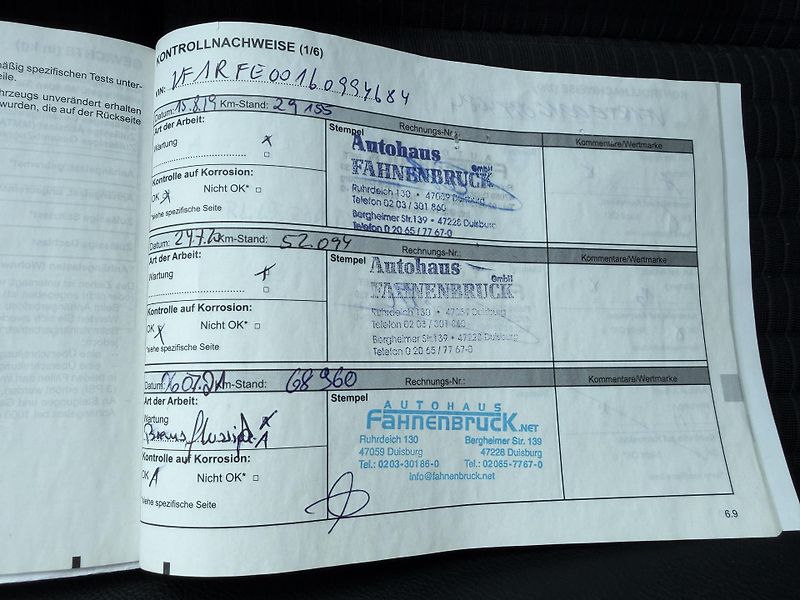 GEWICHTE (in kg)
mäßig spezifischen Tests unter-
eile.
hrzeugs unverändert erhalten
wurden, die auf der Rückseite
KONTROLLNACHWEISE (1/6)
VIN: VF1RFE00160994684
Datum: 15.8.19 Km-Stand: 29 155
Art der Arbeit:
Wartung
Kontrolle auf Korrosion:
OK Nicht OK*
*siehe spezifische Seite
Stempel Rechnungs-Nr.:
Autohaus
FAHNENBRUCK GmbH
Ruhrdeich 130 • 47059 Duisburg
Telefon 02 03 / 301 860
Bergheimer Str.139 • 47228 Duisburg
Telefon 0 20 65 / 77 67-0
Kommentare/Wertmarke
Datum: Km-Stand: 52.094
Art der Arbeit:
Wartung
Kontrolle auf Korrosion:
OK Nicht OK*
*siehe spezifische Seite
Stempel Rechnungs-Nr.:
Autohaus
FAHNENBRUCK GmbH
Ruhrdeich 130 • 47059 Duisburg
Telefon 02 03 / 301 860
Bergheimer Str.139 • 47228 Duisburg
Telefon 0 20 65 / 77 67-0
Kommentare/Wertmarke
Datum: 06.07.21 Km-Stand: 68 960
Art der Arbeit:
Wartung
Kontrolle auf Korrosion:
OK Nicht OK*
*siehe spezifische Seite
Stempel Rechnungs-Nr.:
AUTOHAUS
FAHNENBRUCK.NET
Ruhrdeich 130 Bergheimer Str. 139
47059 Duisburg 47228 Duisburg
Tel.: 0203-30186-0 Tel.: 02065-7767-0
info@fahnenbruck.net
Kommentare/Wertmarke
6.9